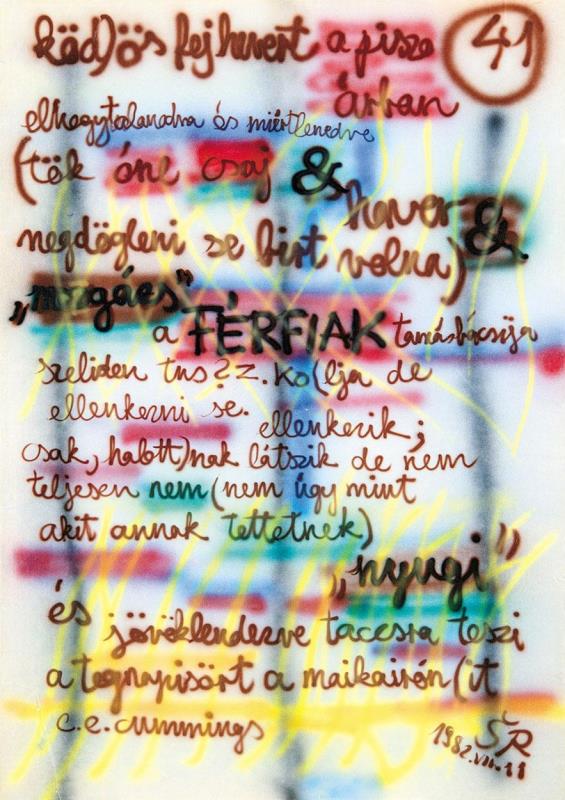 köd)ös fej hevert a pisze 41
árban
elhagytalanodva és miértlenedve
(tök óne csaj &
haver &
megdögleni se birt volna)
„mozgács”
a FÉRFIAK tamásbácsija
szeliden tus?z.ko(lja de
ellenkezni se.
ellenkezik;
csak, halott)nak látszik de nem
teljesen nem (nem úgy mint
akit annak tettetnek)
„nyugi”
és jövéklendezve taccsra teszi
a tegnapisört a maikairén (it
c.e.cummings
ŠR
1982.VII.11